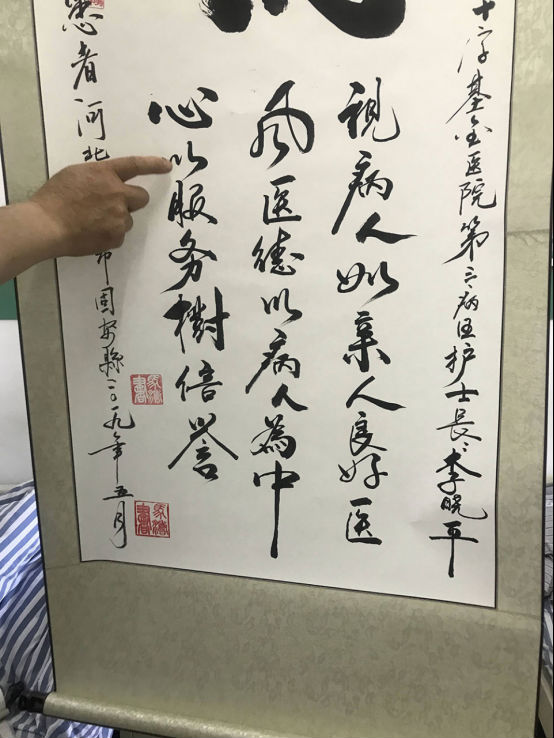 十字基金医院第三病区护士长：李晓平
視病人如亲人良好医
风医德以病人為中
心以服务樹信誉
患者河北 市固安縣二〇一九年五月